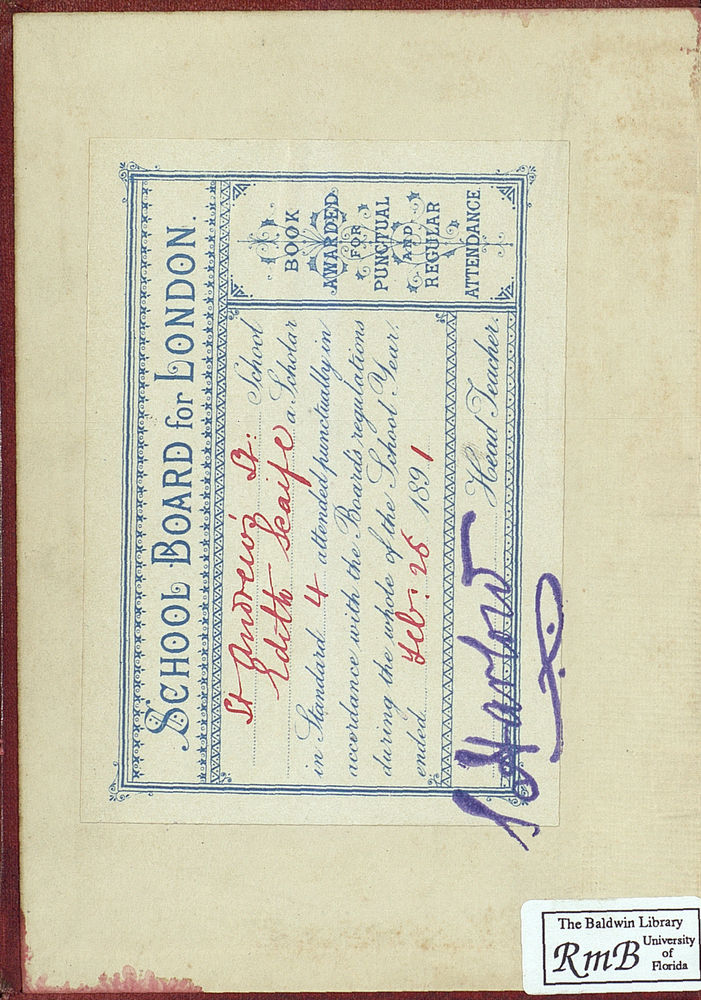 SCHOOL BOARD for LONDON.
St Andrew's St. School
Edith Scaife a Scholar
in Standard 4 attended punctually in
accordance with the Boards regulations
during the whole of the School Year.
ended Feb: 26 1891
S Harlow Head Teacher.
BOOK
AWARDED
FOR
PUNCTUAL
AND
REGULAR
ATTENDANCE
The Baldwin Library
RmB University
of
Florida